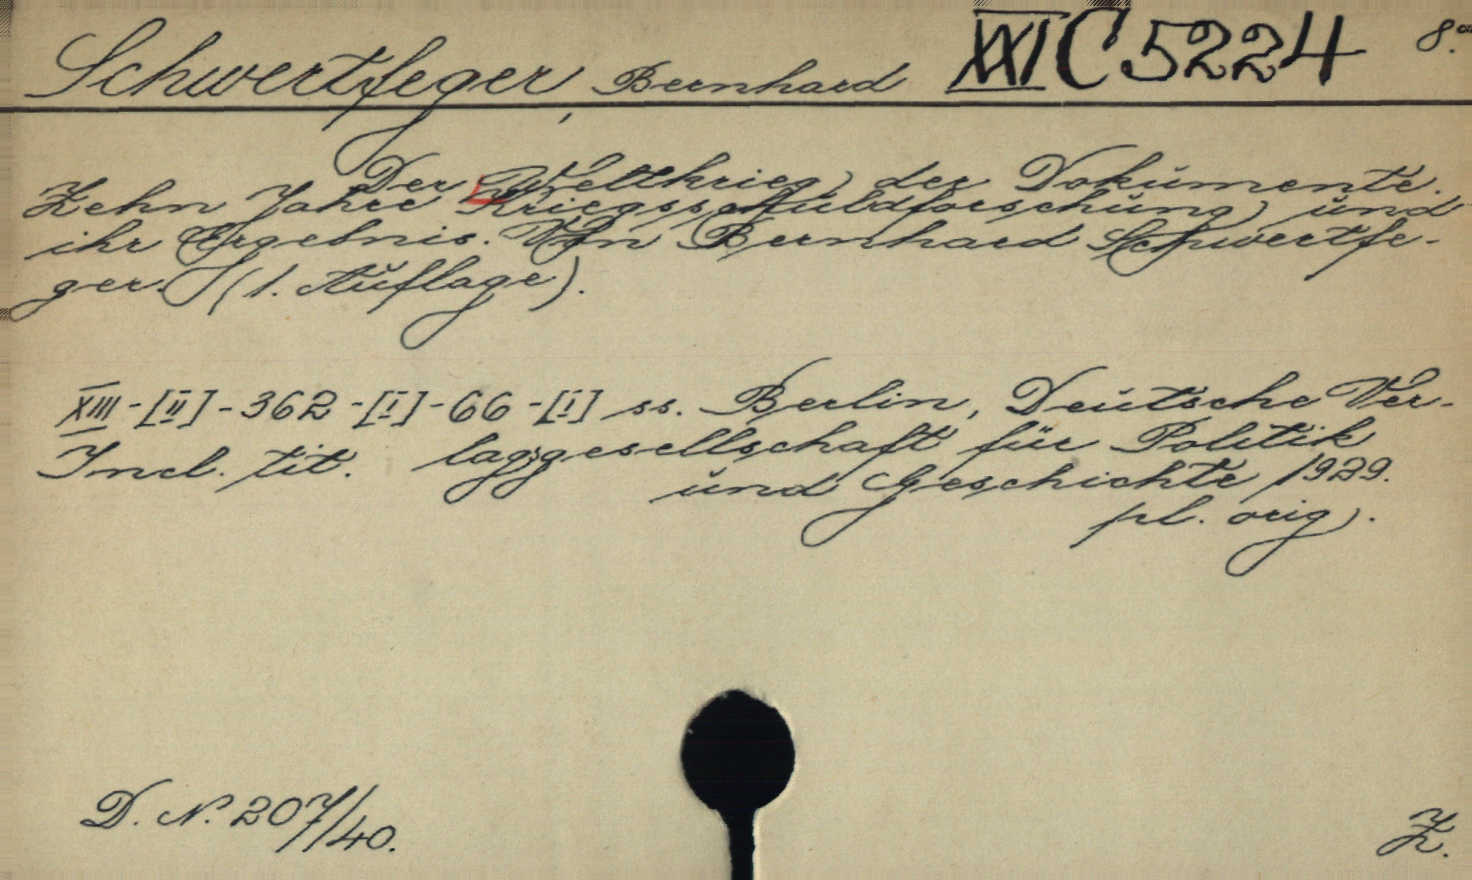 Schwertfeger, Bernhard XXI C 5224 8.°
Der Weltkrieg der Dokumente.
Zehn Jahre Kriegsschuldforschung und
ihr Ergebnis. Von Bernhard Schwertfe-
ger. (1. Auflage).
XIII-[II]-362-[I]-66-[I] ss. Berlin, Deutsche Ver-
Incl. tit. lagsgesellschaft für Politik
und Geschichte 1929.
pl. orig.
D. N. 207/40.
Z.